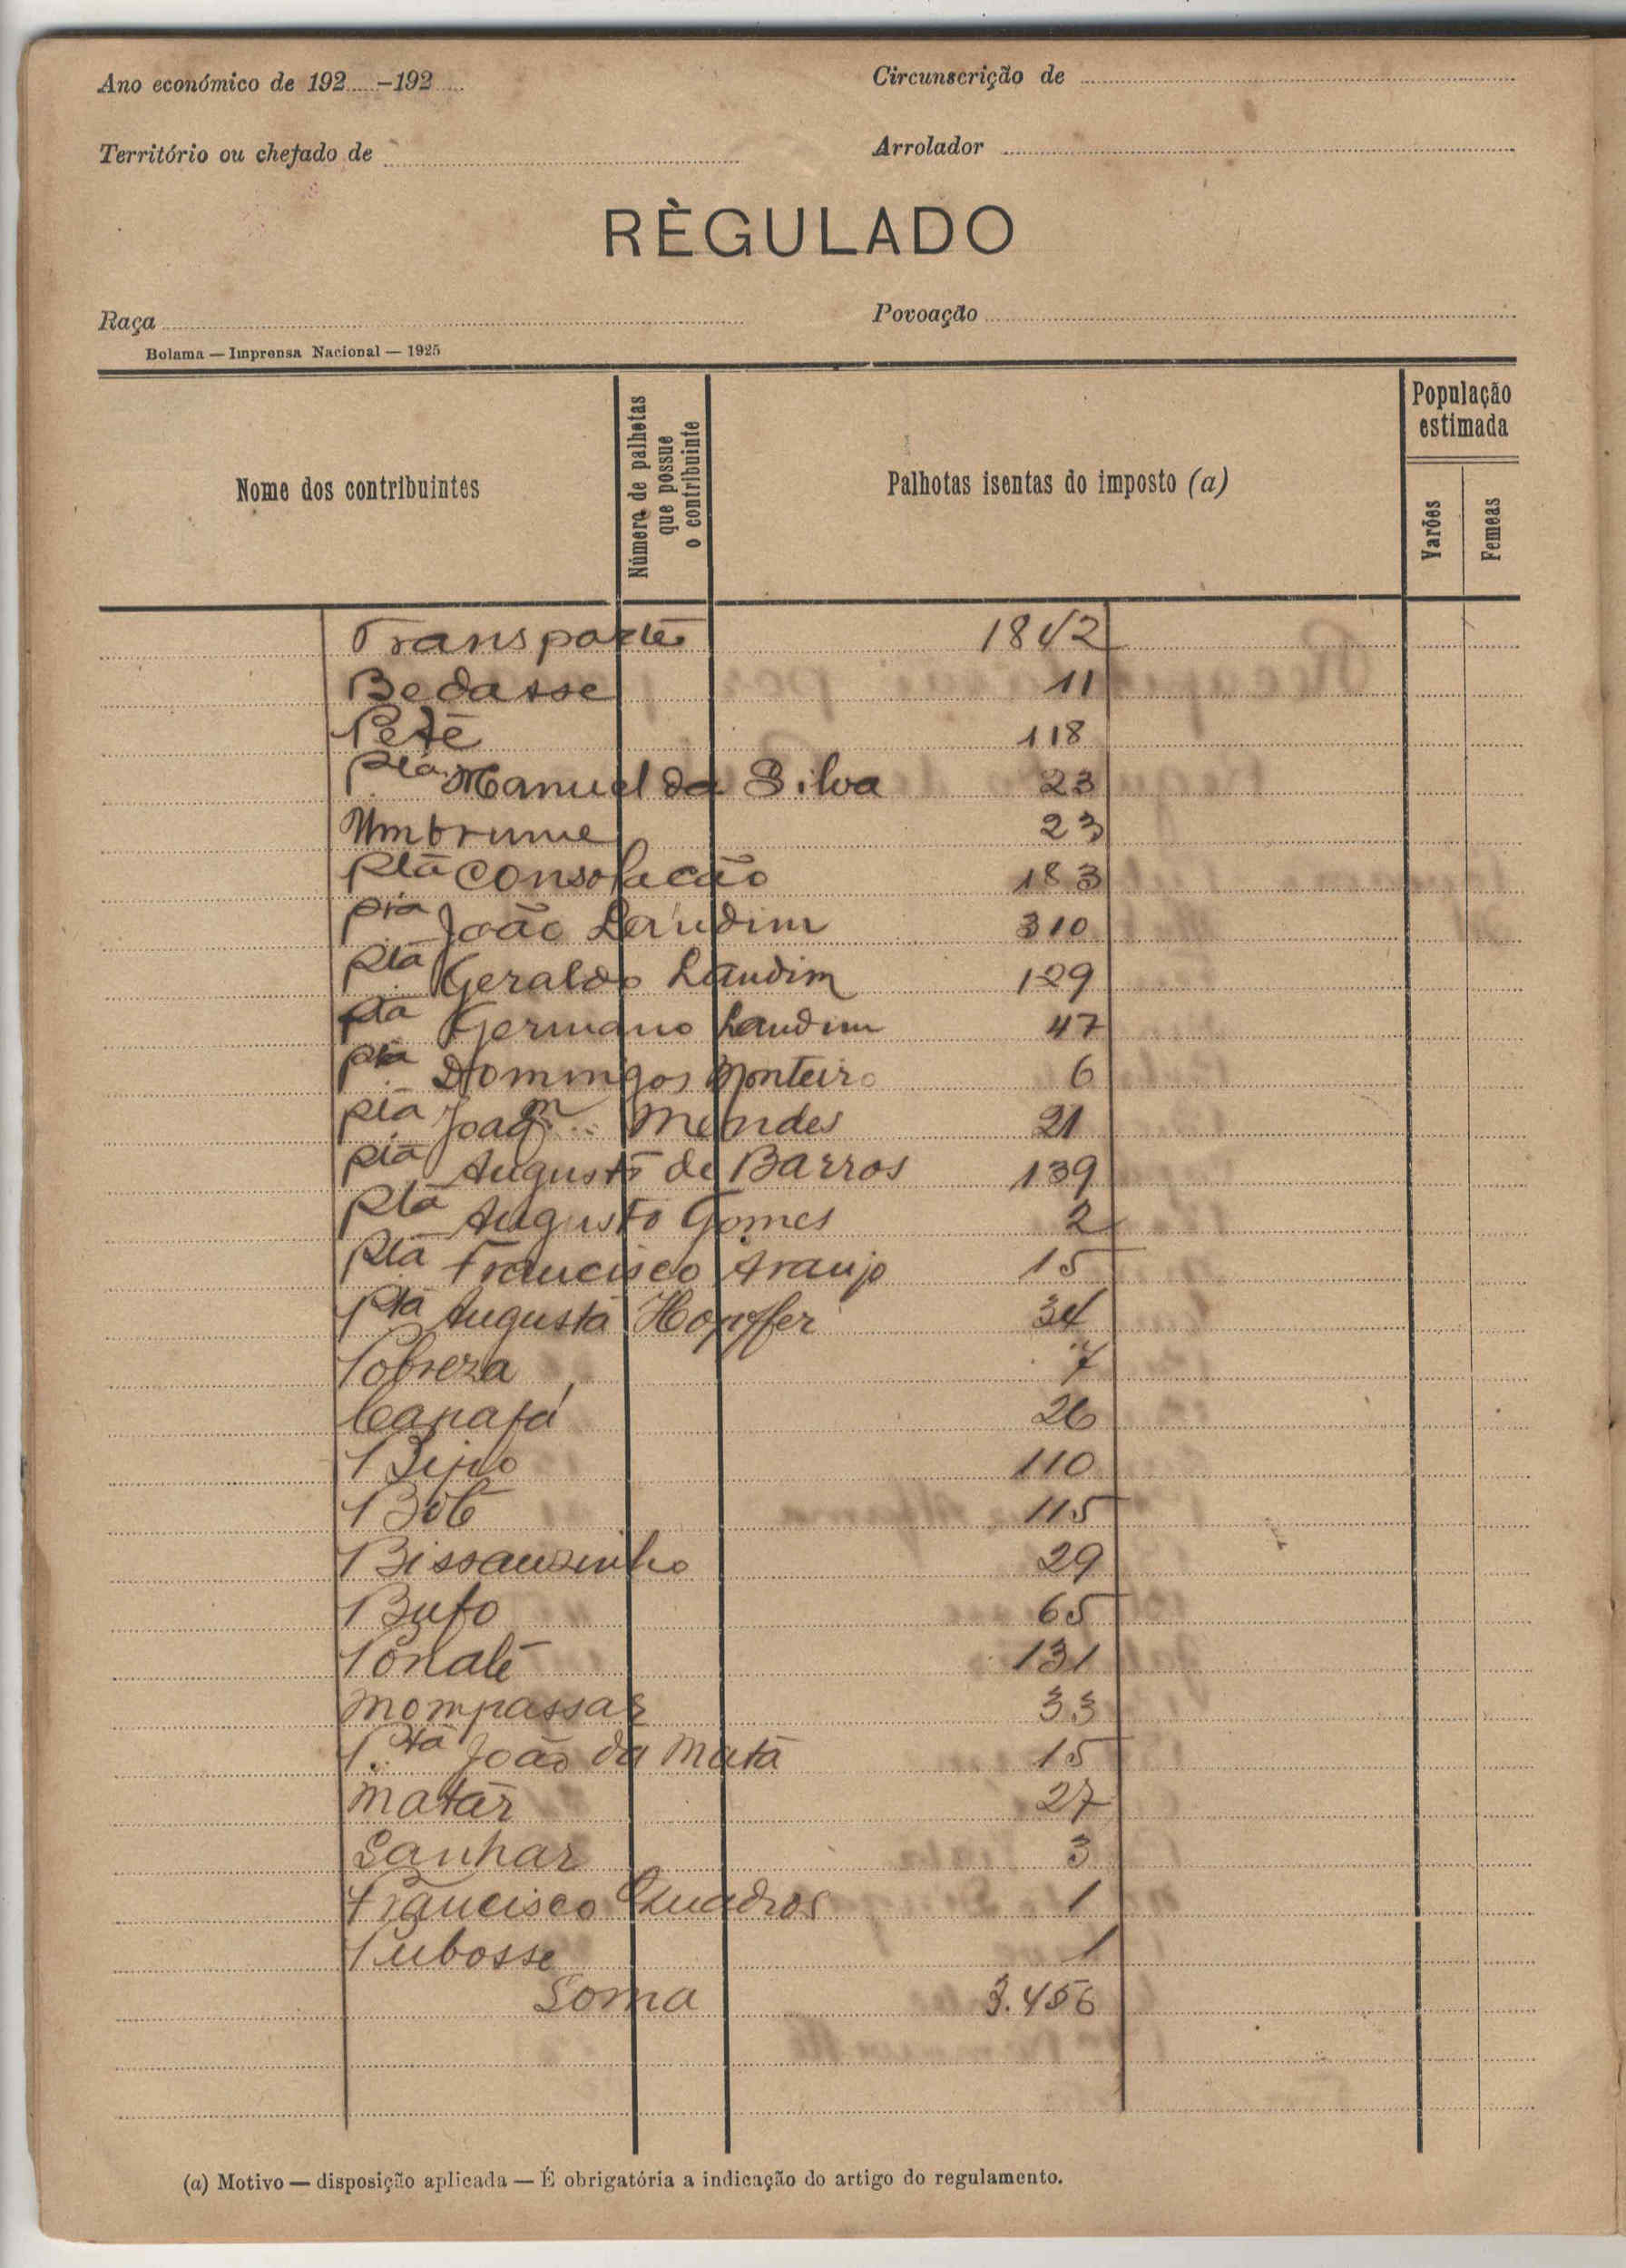 Ano económico de 192.....-192.....
Circunscrição de
Território ou chefado de
Arrolador
RÈGULADO
Raça
Povoação
Bolama — Imprensa Nacional — 1925
Nome dos contribuintes
Número de palhotas que possue o contribuinte
Palhotas isentas do imposto (a)
População estimada
Varões
Femeas
Transporte 1842
Bedasse 11
Petê 118
Pta Manuel da Silva 23
Umbrume 23
Pta Consolacão 183
Pta João Landim 310
Pta Geraldo Landim 129
Pta Germano Landim 47
Pta Domingos Monteiro 6
Pta Joaqm Mendes 21
Pta Augusto de Barros 139
Pta Augusto Gomes 2
Pta Francisco Araujo 15
Pta Augusta Hopffer 34
Pobreza 7
Canafá 26
Bijió 110
Bôte 115
Bissauzinho 29
Bufo 65
Ponatê 131
Mompassar 33
P.ta João da Mata 15
Matar 27
Sanhar 3
Francisco Quadros 1
Pubosse 1
Soma 3.456
(a) Motivo — disposição aplicada — É obrigatória a indicação do artigo do regulamento.